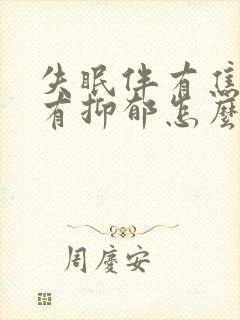 失眠伴有焦
有抑郁怎麽
周慶安